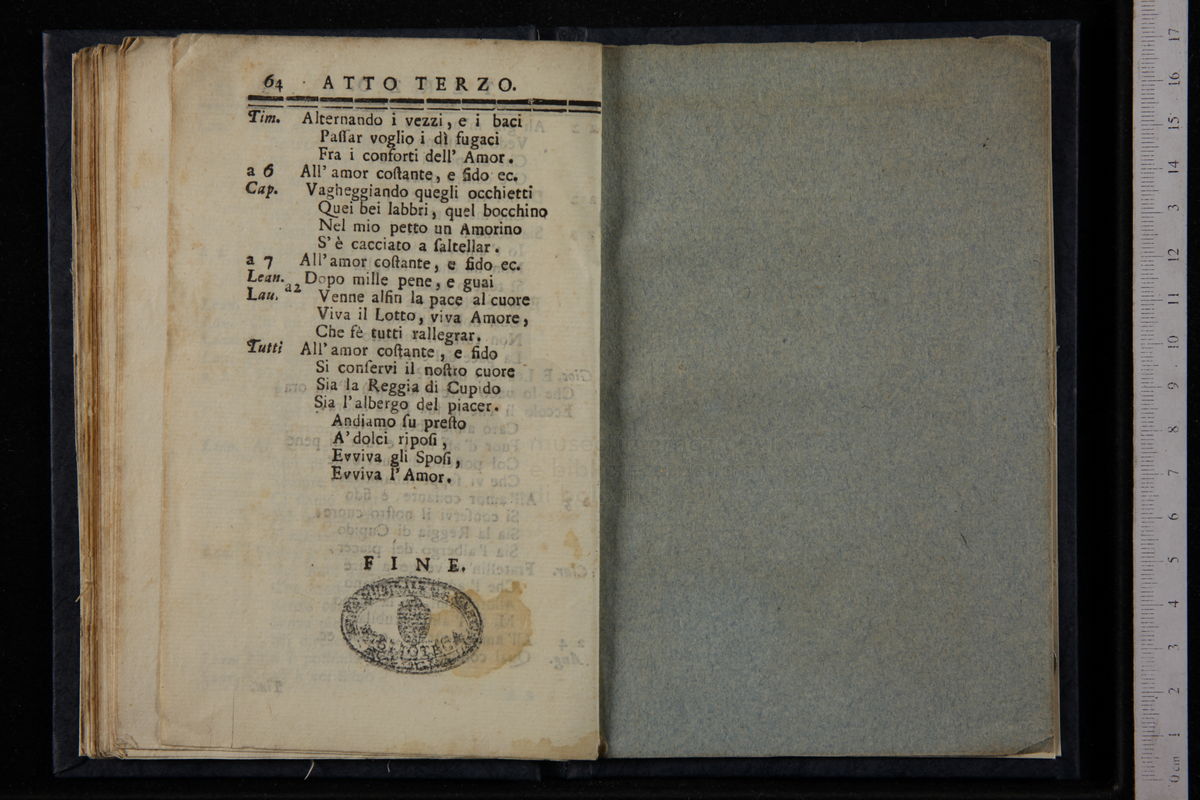 64 ATTO TERZO.
Tim. Alternando i vezzi, e i baci
Paſſar voglio i dì fugaci
Fra i conforti dell' Amor.
a 6 All' amor coſtante, e fido ec.
Cap. Vagheggiando quegli occhietti
Quei bei labbri, quel bocchino
Nel mio petto un Amorino
S' è cacciato a ſaltellar.
a 7 All' amor coſtante, e fido ec.
Lean. Dopo mille pene, e guai
a2
Lau. Venne alfin la pace al cuore
Viva il Lotto, viva Amore,
Che fè tutti rallegrar.
Tutti All' amor coſtante, e fido
Si conſervi il noſtro cuore
Sia la Reggia di Cupido
Sia l'albergo del piacer.
Andiamo ſu preſto
A' dolci ripoſi,
Evviva gli Spoſi,
Evviva l'Amor.
FINE.
0 cm 1 2 3 4 5 6 7 8 9 10 11 12 3 14 15 16 17